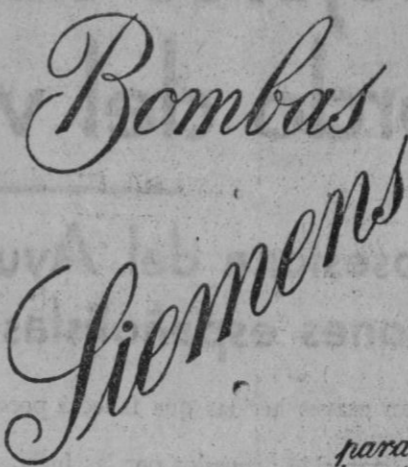 Bombas
Siemens
para